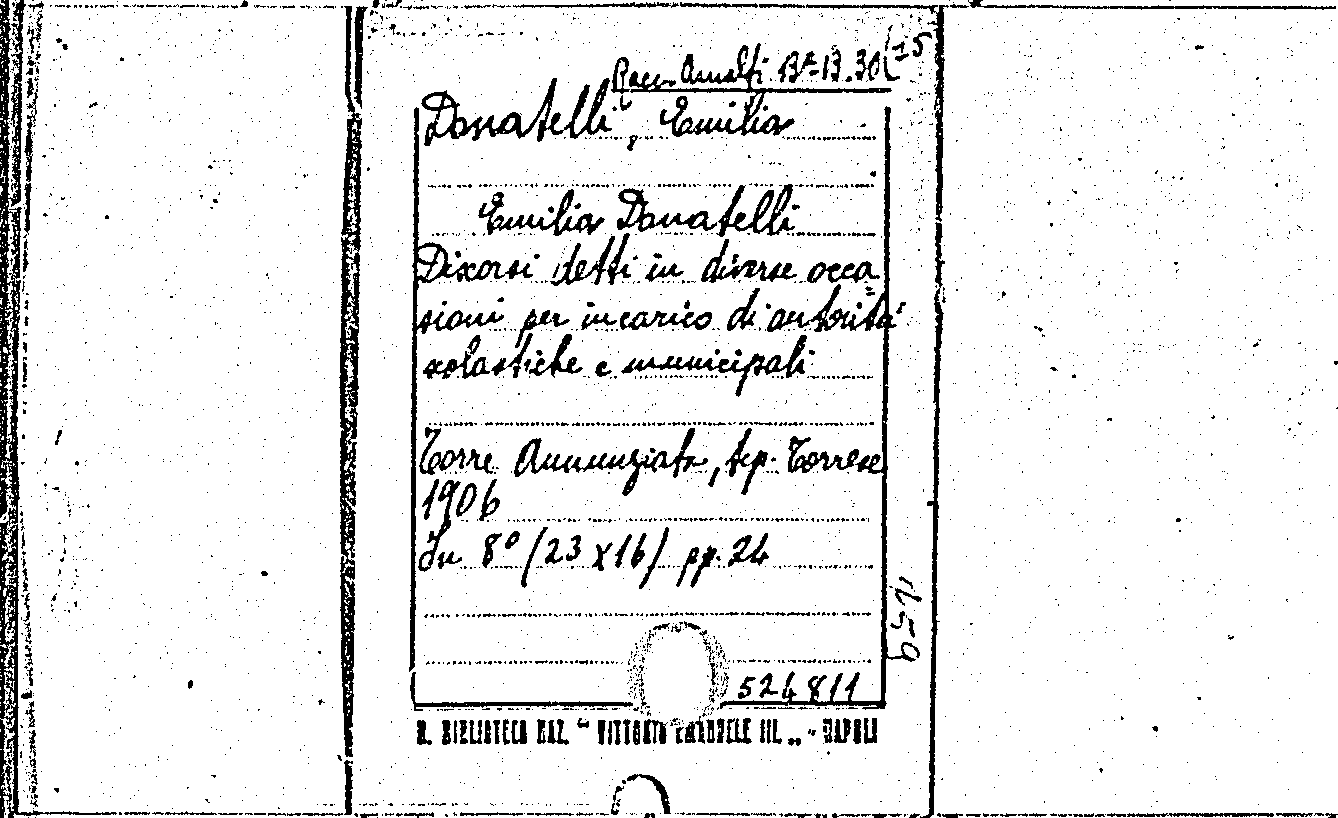 Racc. Amalfi Bª 13.30(15
Donatelli, Emilia
Emilia Donatelli
Discorsi detti in diverse occa
sioni per incarico di autorita'
scolastiche e municipali
Torre Annunziata, tip. Torrese
1906
In 8º (23x16) pp. 24
524811
R. BIBLIOTECA NAZ. "VITTORIO EMANUELE III„ - NAPOLI